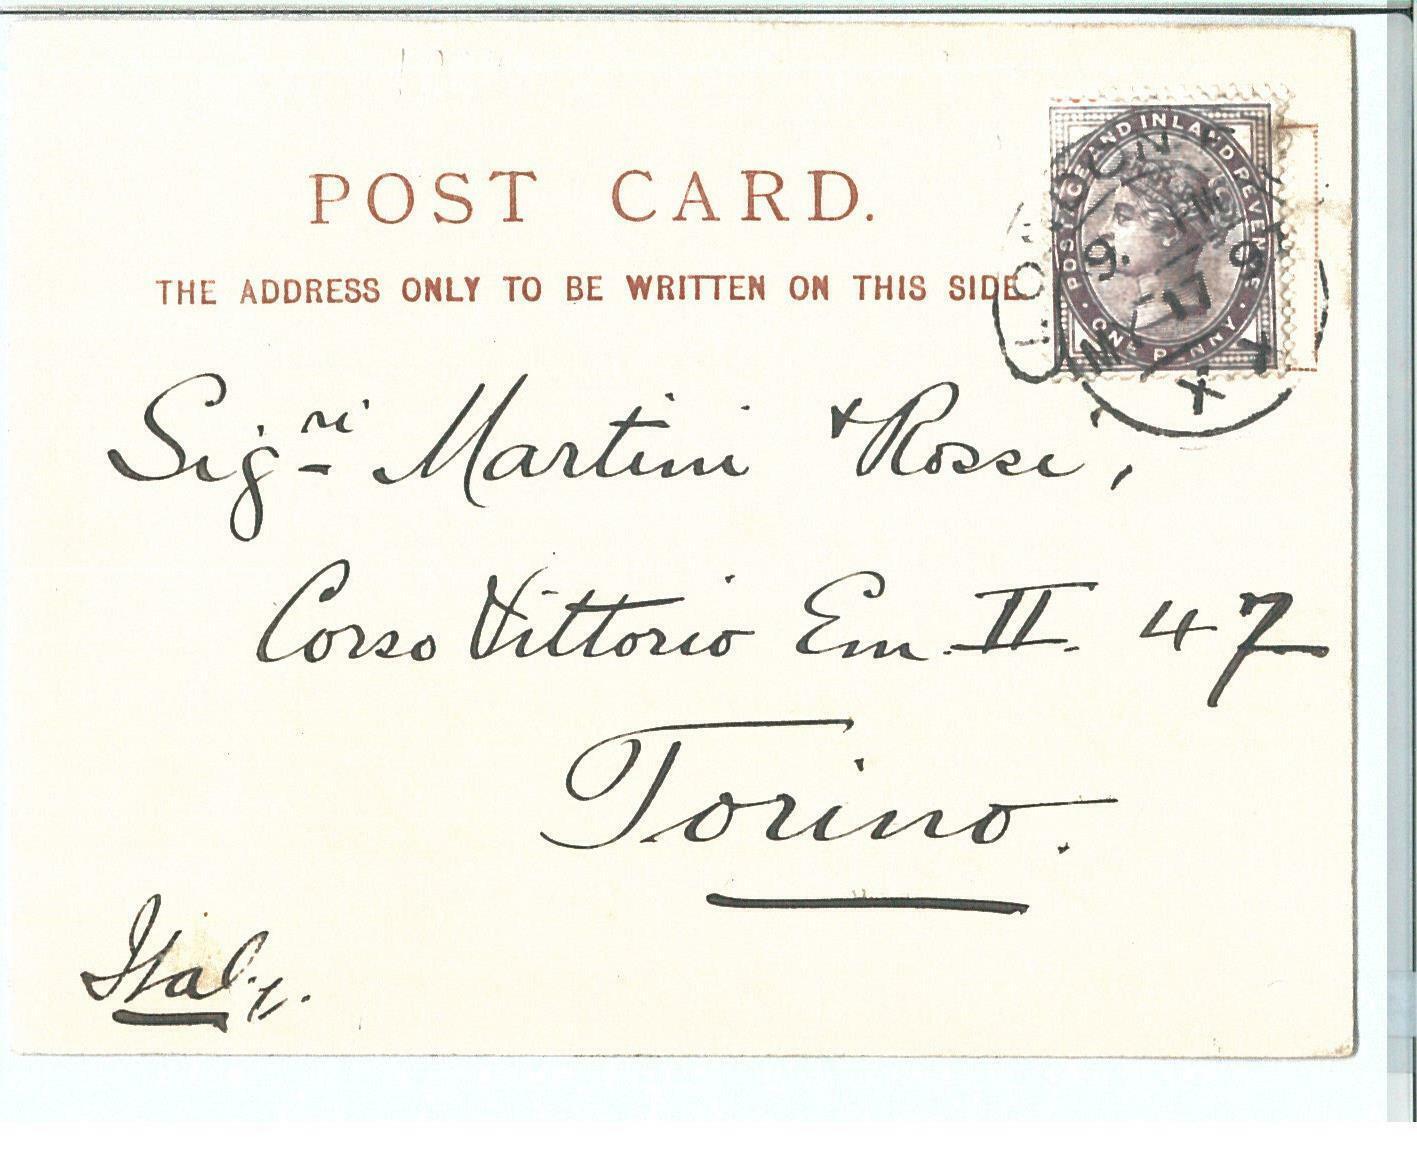 POST CARD.
THE ADDRESS ONLY TO BE WRITTEN ON THIS SIDE
POSTAGE AND INLAND REVENUE
ONE PENNY
LONDON
17
Sigri Martini & Rossi,
Corso Vittorio Em. II. 47
Torino.
Italy.